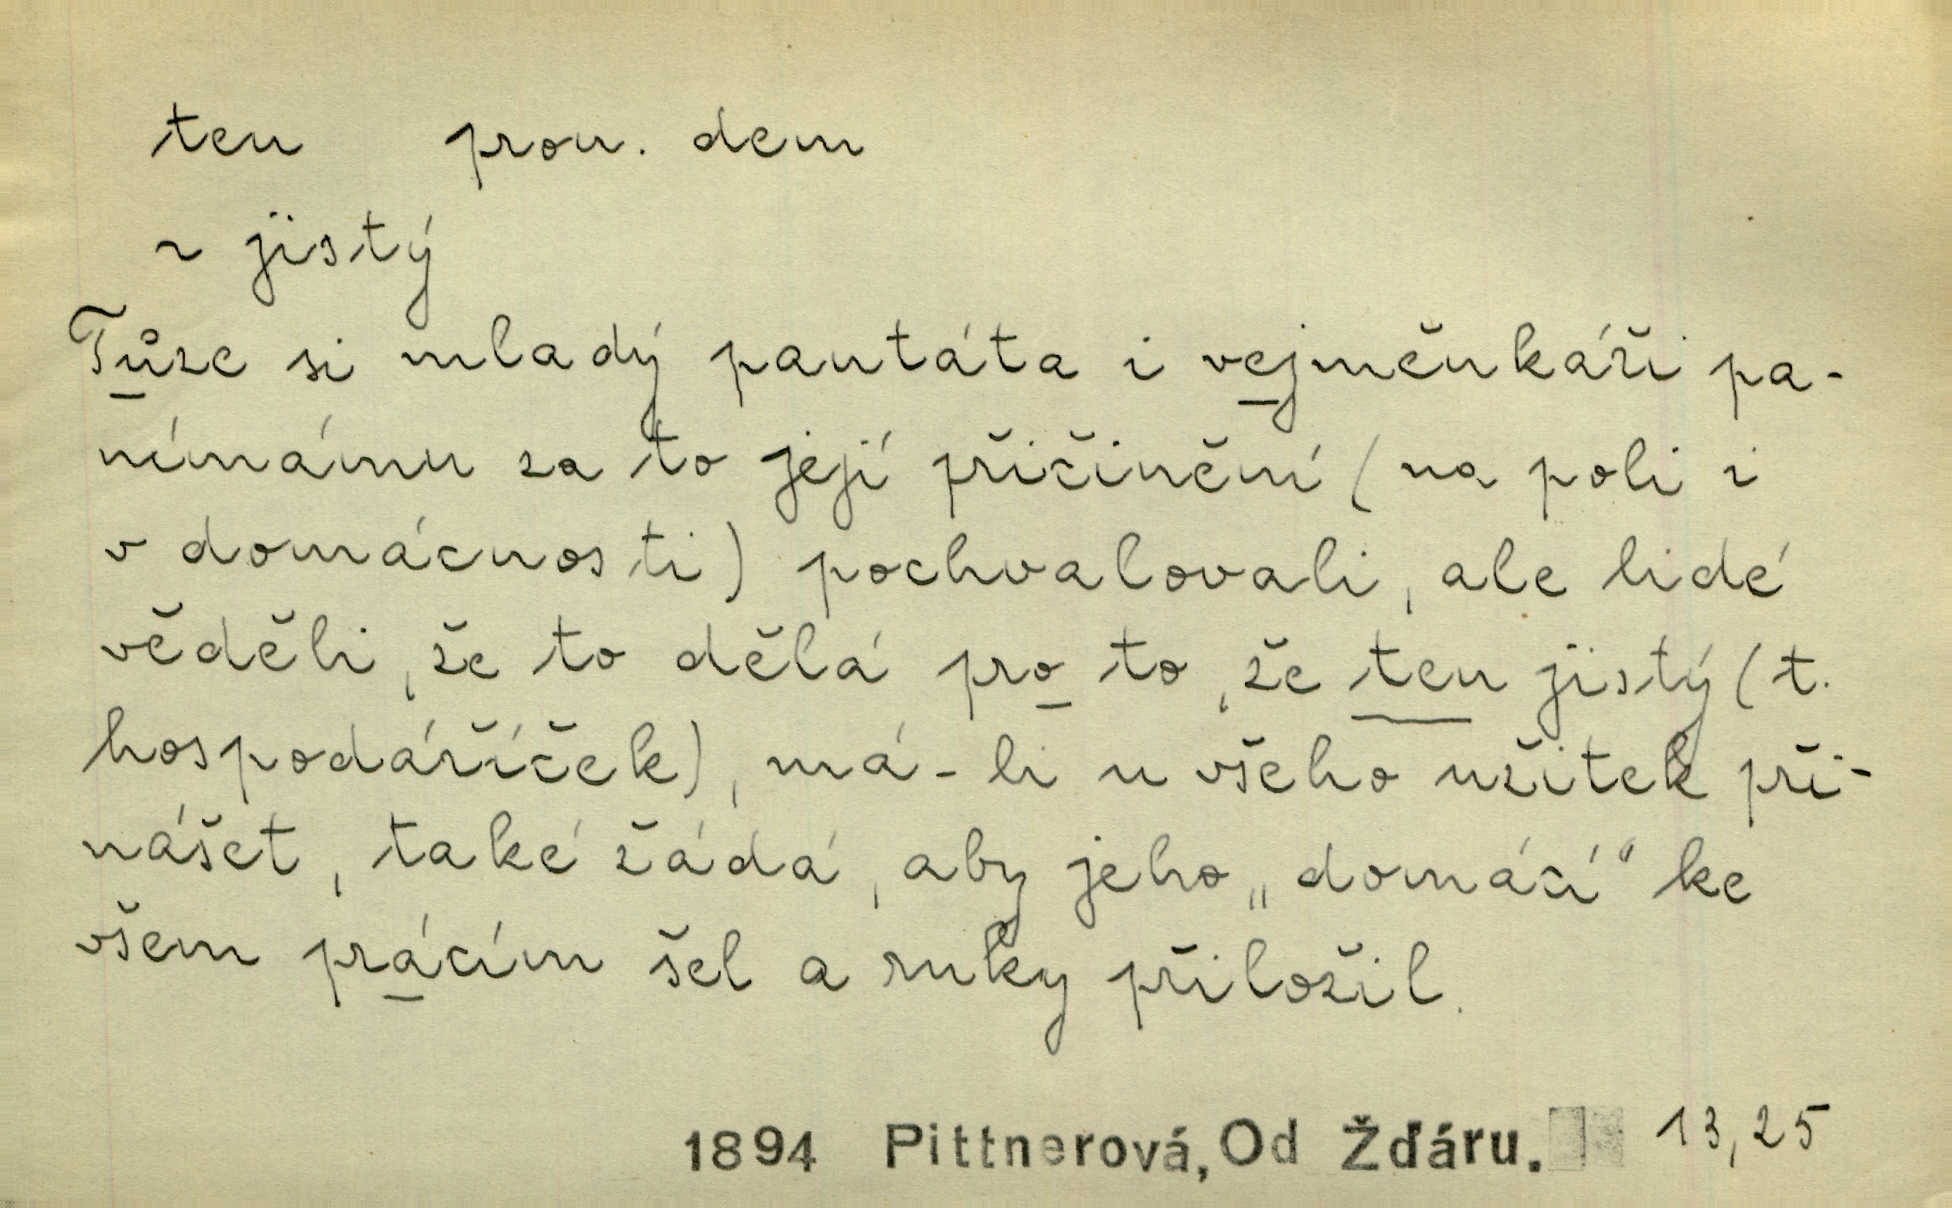 ten pron. dem
~ jistý
Tůze si mladý pantáta i vejměnkáři pa-
nímámu za to její přičinění (na poli i
v domácnosti) pochvalovali, ale lidé
věděli, že to dělá pro to, že ten jistý (t.
hospodáříček), má-li u všeho užitek při-
nášet, také žádá, aby jeho „domácí“ ke
všem prácím šel a ruky přiložil.
1894 Pittnerová, Od Žďáru. 13,25